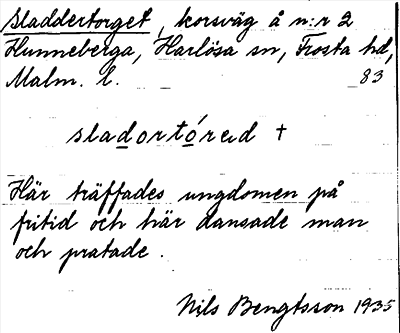 Sladdertorget, korsväg å n:r 2
Hunneberga, Harlösa sn, Frosta hd,
Malm. l. 83
sladortóred †
Här träffades ungdomen på
fritid och här dansade man
och pratade.
Nils Bengtsson 1935